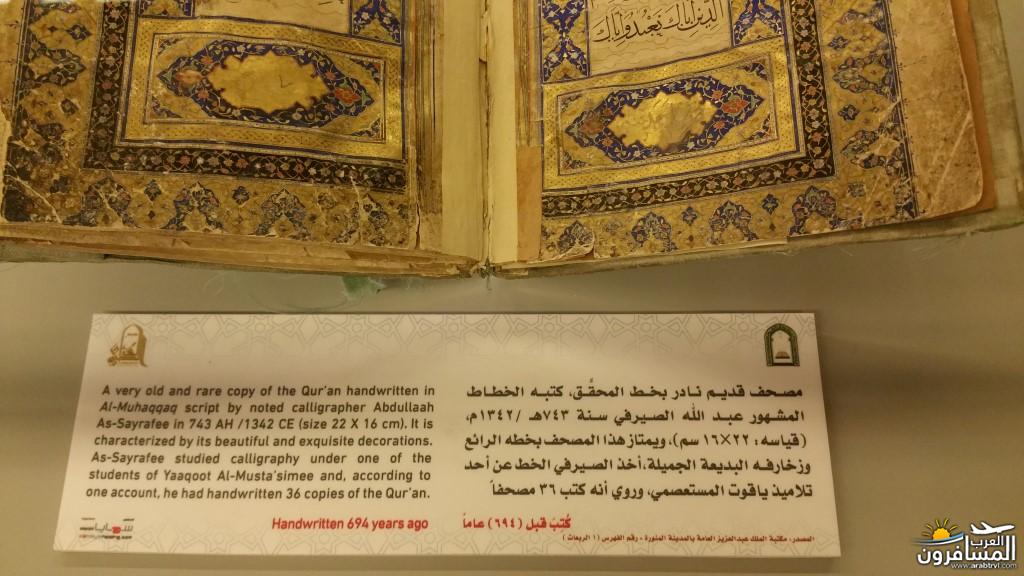 الذين إياك نعبد وإياك
A very old and rare copy of the Qur'an handwritten in
Al-Muhaqqaq script by noted calligrapher Abdullaah
As-Sayrafee in 743 AH /1342 CE (size 22 X 16 cm). It is
characterized by its beautiful and exquisite decorations.
As-Sayrafee studied calligraphy under one of the
students of Yaaqoot Al-Musta'simee and, according to
one account, he had handwritten 36 copies of the Qur'an.
Handwritten 694 years ago
مصحف قديم نادر بخط المحقَّق، كتبه الخطاط
المشهور عبد الله الصيرفي سنة ٧٤٣هـ /١٣٤٢م،
(قياسه: ٢٢×١٦ سم)، ويمتاز هذا المصحف بخطه الرائع
وزخارفه البديعة الجميلة، أخذ الصيرفي الخط عن أحد
تلاميذ ياقوت المستعصمي، وروي أنه كتب ٣٦ مصحفاً
كُتبَ قبل (٦٩٤) عاماً
المصدر، مكتبة الملك عبدالعزيز العامة بالمدينة المنورة - رقم الفهرس (١ الربعات)
سمايا
العرب
المسافرون
www.arabtrvl.com